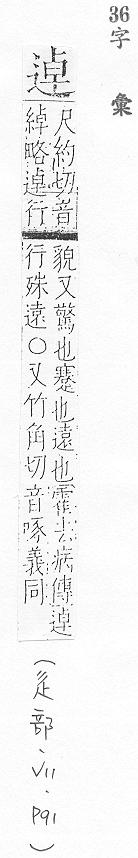 36字 彙
逴
尺約切音
綽略逴行
貌又驚也蹇也遠也霍去病傳逴
行殊遠○又竹角切音啄義同
(辵部、VII、P91)